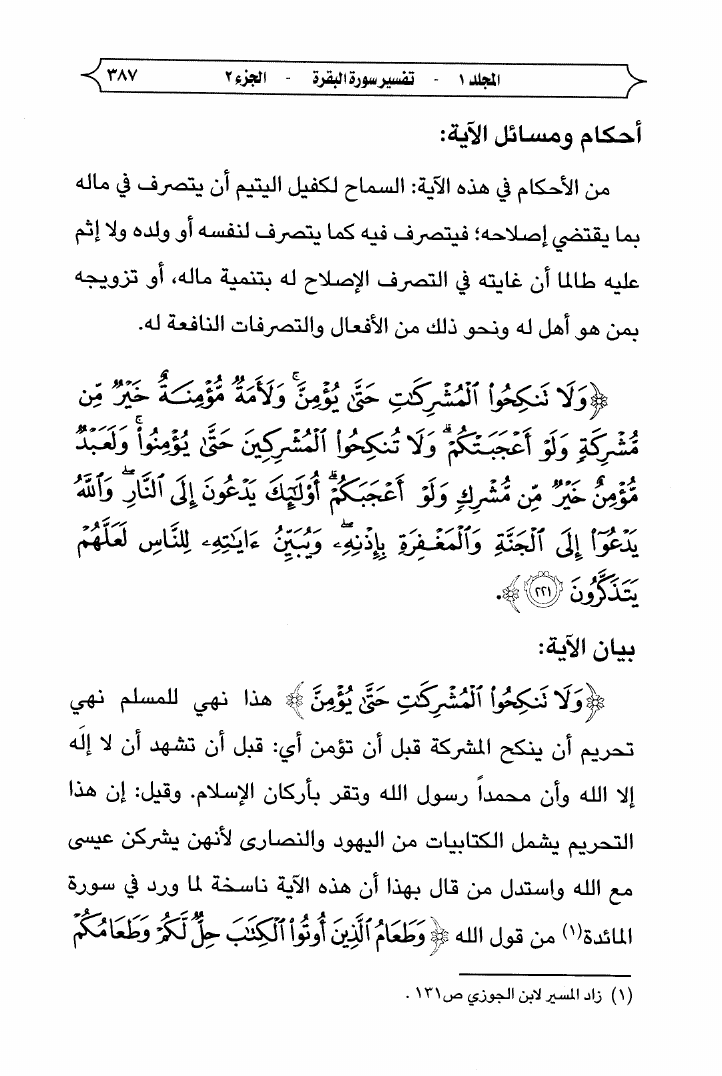 المجلد ١ - تفسير سورة البقرة - الجزء ٢ ٣٨٧
أحكام ومسائل الآية:
من الأحكام في هذه الآية: السماح لكفيل اليتيم أن يتصرف في ماله
بما يقتضي إصلاحه؛ فيتصرف فيه كما يتصرف لنفسه أو ولده ولا إثم
عليه طالما أن غايته في التصرف الإصلاح له بتنمية ماله، أو تزويجه
بمن هو أهل له ونحو ذلك من الأفعال والتصرفات النافعة له.
﴿وَلَا تَنكِحُواْ ٱلْمُشْرِكَٰتِ حَتَّىٰ يُؤْمِنَّ ۚ وَلَأَمَةٌ مُّؤْمِنَةٌ خَيْرٌ مِّن
مُّشْرِكَةٍ وَلَوْ أَعْجَبَتْكُمْ ۗ وَلَا تُنكِحُواْ ٱلْمُشْرِكِينَ حَتَّىٰ يُؤْمِنُواْ ۚ وَلَعَبْدٌ
مُّؤْمِنٌ خَيْرٌ مِّن مُّشْرِكٍ وَلَوْ أَعْجَبَكُمْ ۗ أُوْلَٰٓئِكَ يَدْعُونَ إِلَى ٱلنَّارِ ۖ وَٱللَّهُ
يَدْعُوٓاْ إِلَى ٱلْجَنَّةِ وَٱلْمَغْفِرَةِ بِإِذْنِهِۦ ۖ وَيُبَيِّنُ ءَايَٰتِهِۦ لِلنَّاسِ لَعَلَّهُمْ
يَتَذَكَّرُونَ ٢٢١﴾.
بيان الآية:
﴿وَلَا تَنكِحُواْ ٱلْمُشْرِكَٰتِ حَتَّىٰ يُؤْمِنَّ﴾ هذا نهي للمسلم نهي
تحريم أن ينكح المشركة قبل أن تؤمن أي: قبل أن تشهد أن لا إلَه
إلا الله وأن محمداً رسول الله وتقر بأركان الإسلام. وقيل: إن هذا
التحريم يشمل الكتابيات من اليهود والنصارى لأنهن يشركن عيسى
مع الله واستدل من قال بهذا أن هذه الآية ناسخة لما ورد في سورة
المائدة(١) من قول الله ﴿وَطَعَامُ ٱلَّذِينَ أُوتُواْ ٱلْكِتَٰبَ حِلٌّ لَّكُمْ وَطَعَامُكُمْ
(١) زاد المسير لابن الجوزي ص١٣١.